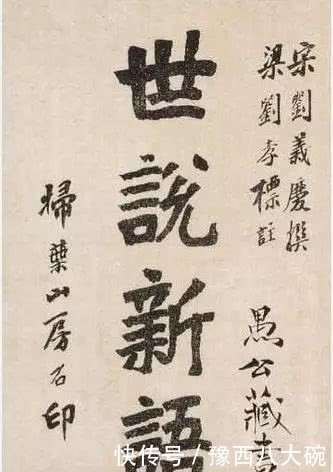 宋劉義慶撰
梁劉孝標註
愚公藏
世說新語
掃葉山房石印
快传号/豫西八大碗